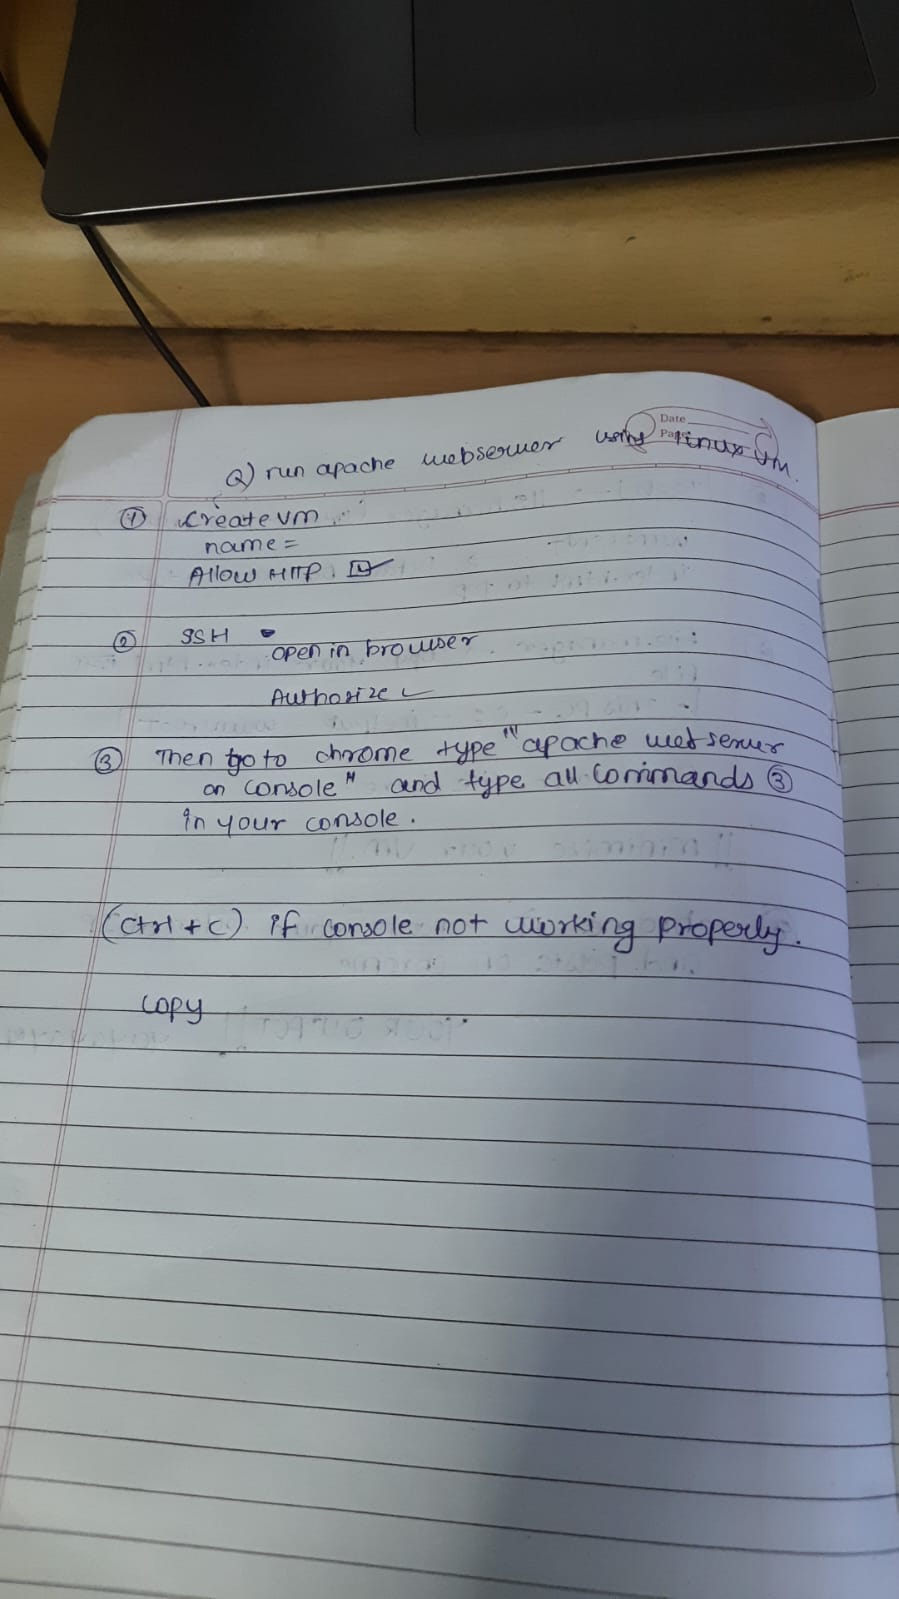 Date
Page
Q) run apache webserver using linux VM.
① Create VM
name =
Allow HTTP : ☑
② SSH
open in browser
Authorize ✓
③ Then go to chrome type "apache web server
on console" and type all commands ③
in your console.
(Ctrl + C) if console not working properly.
copy